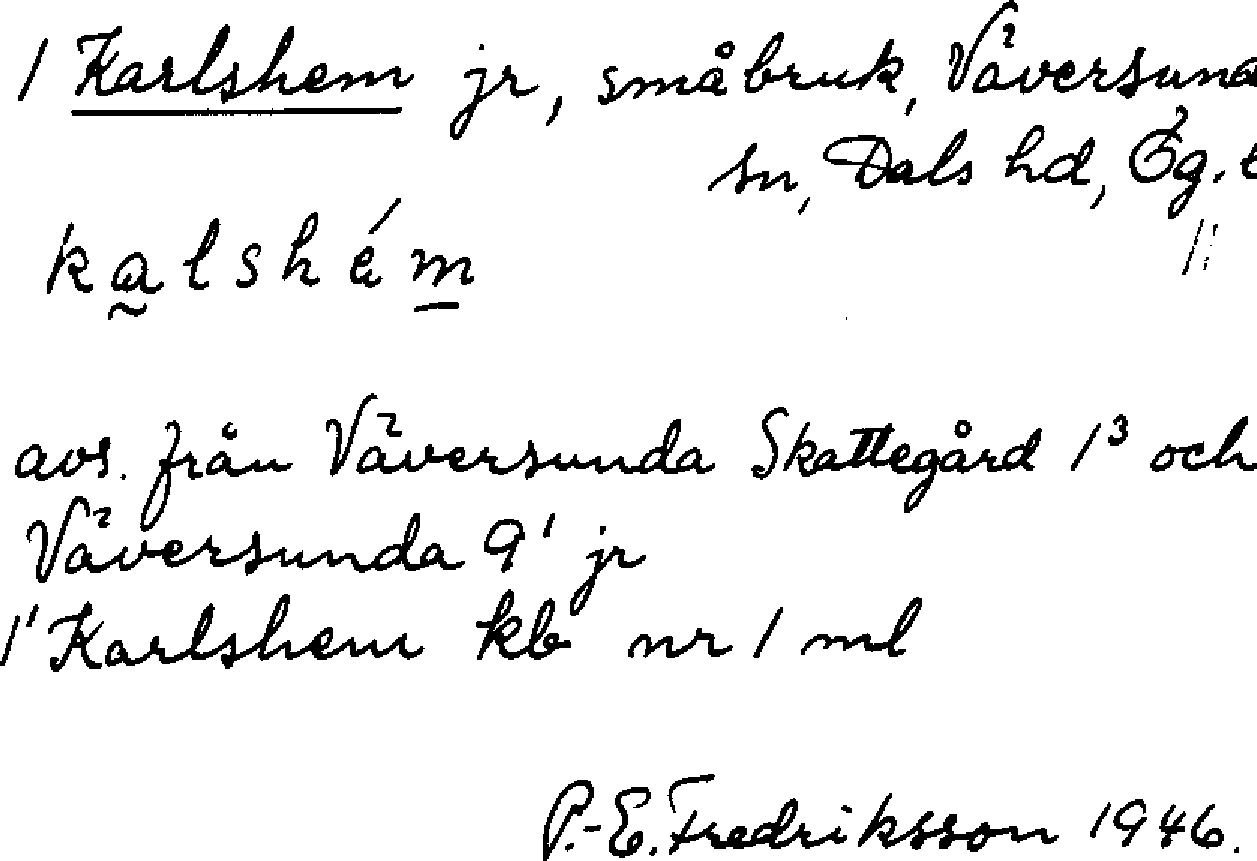 1 Karlshem jr, småbruk, Väversunda
sn, Dals hd, Ög. l
kalshém
avs. från Väversunda Skattegård 1³ och
Väversunda 9¹ jr
1¹ Karlshem kb nr 1 ml
P.-E. Fredriksson 1946.